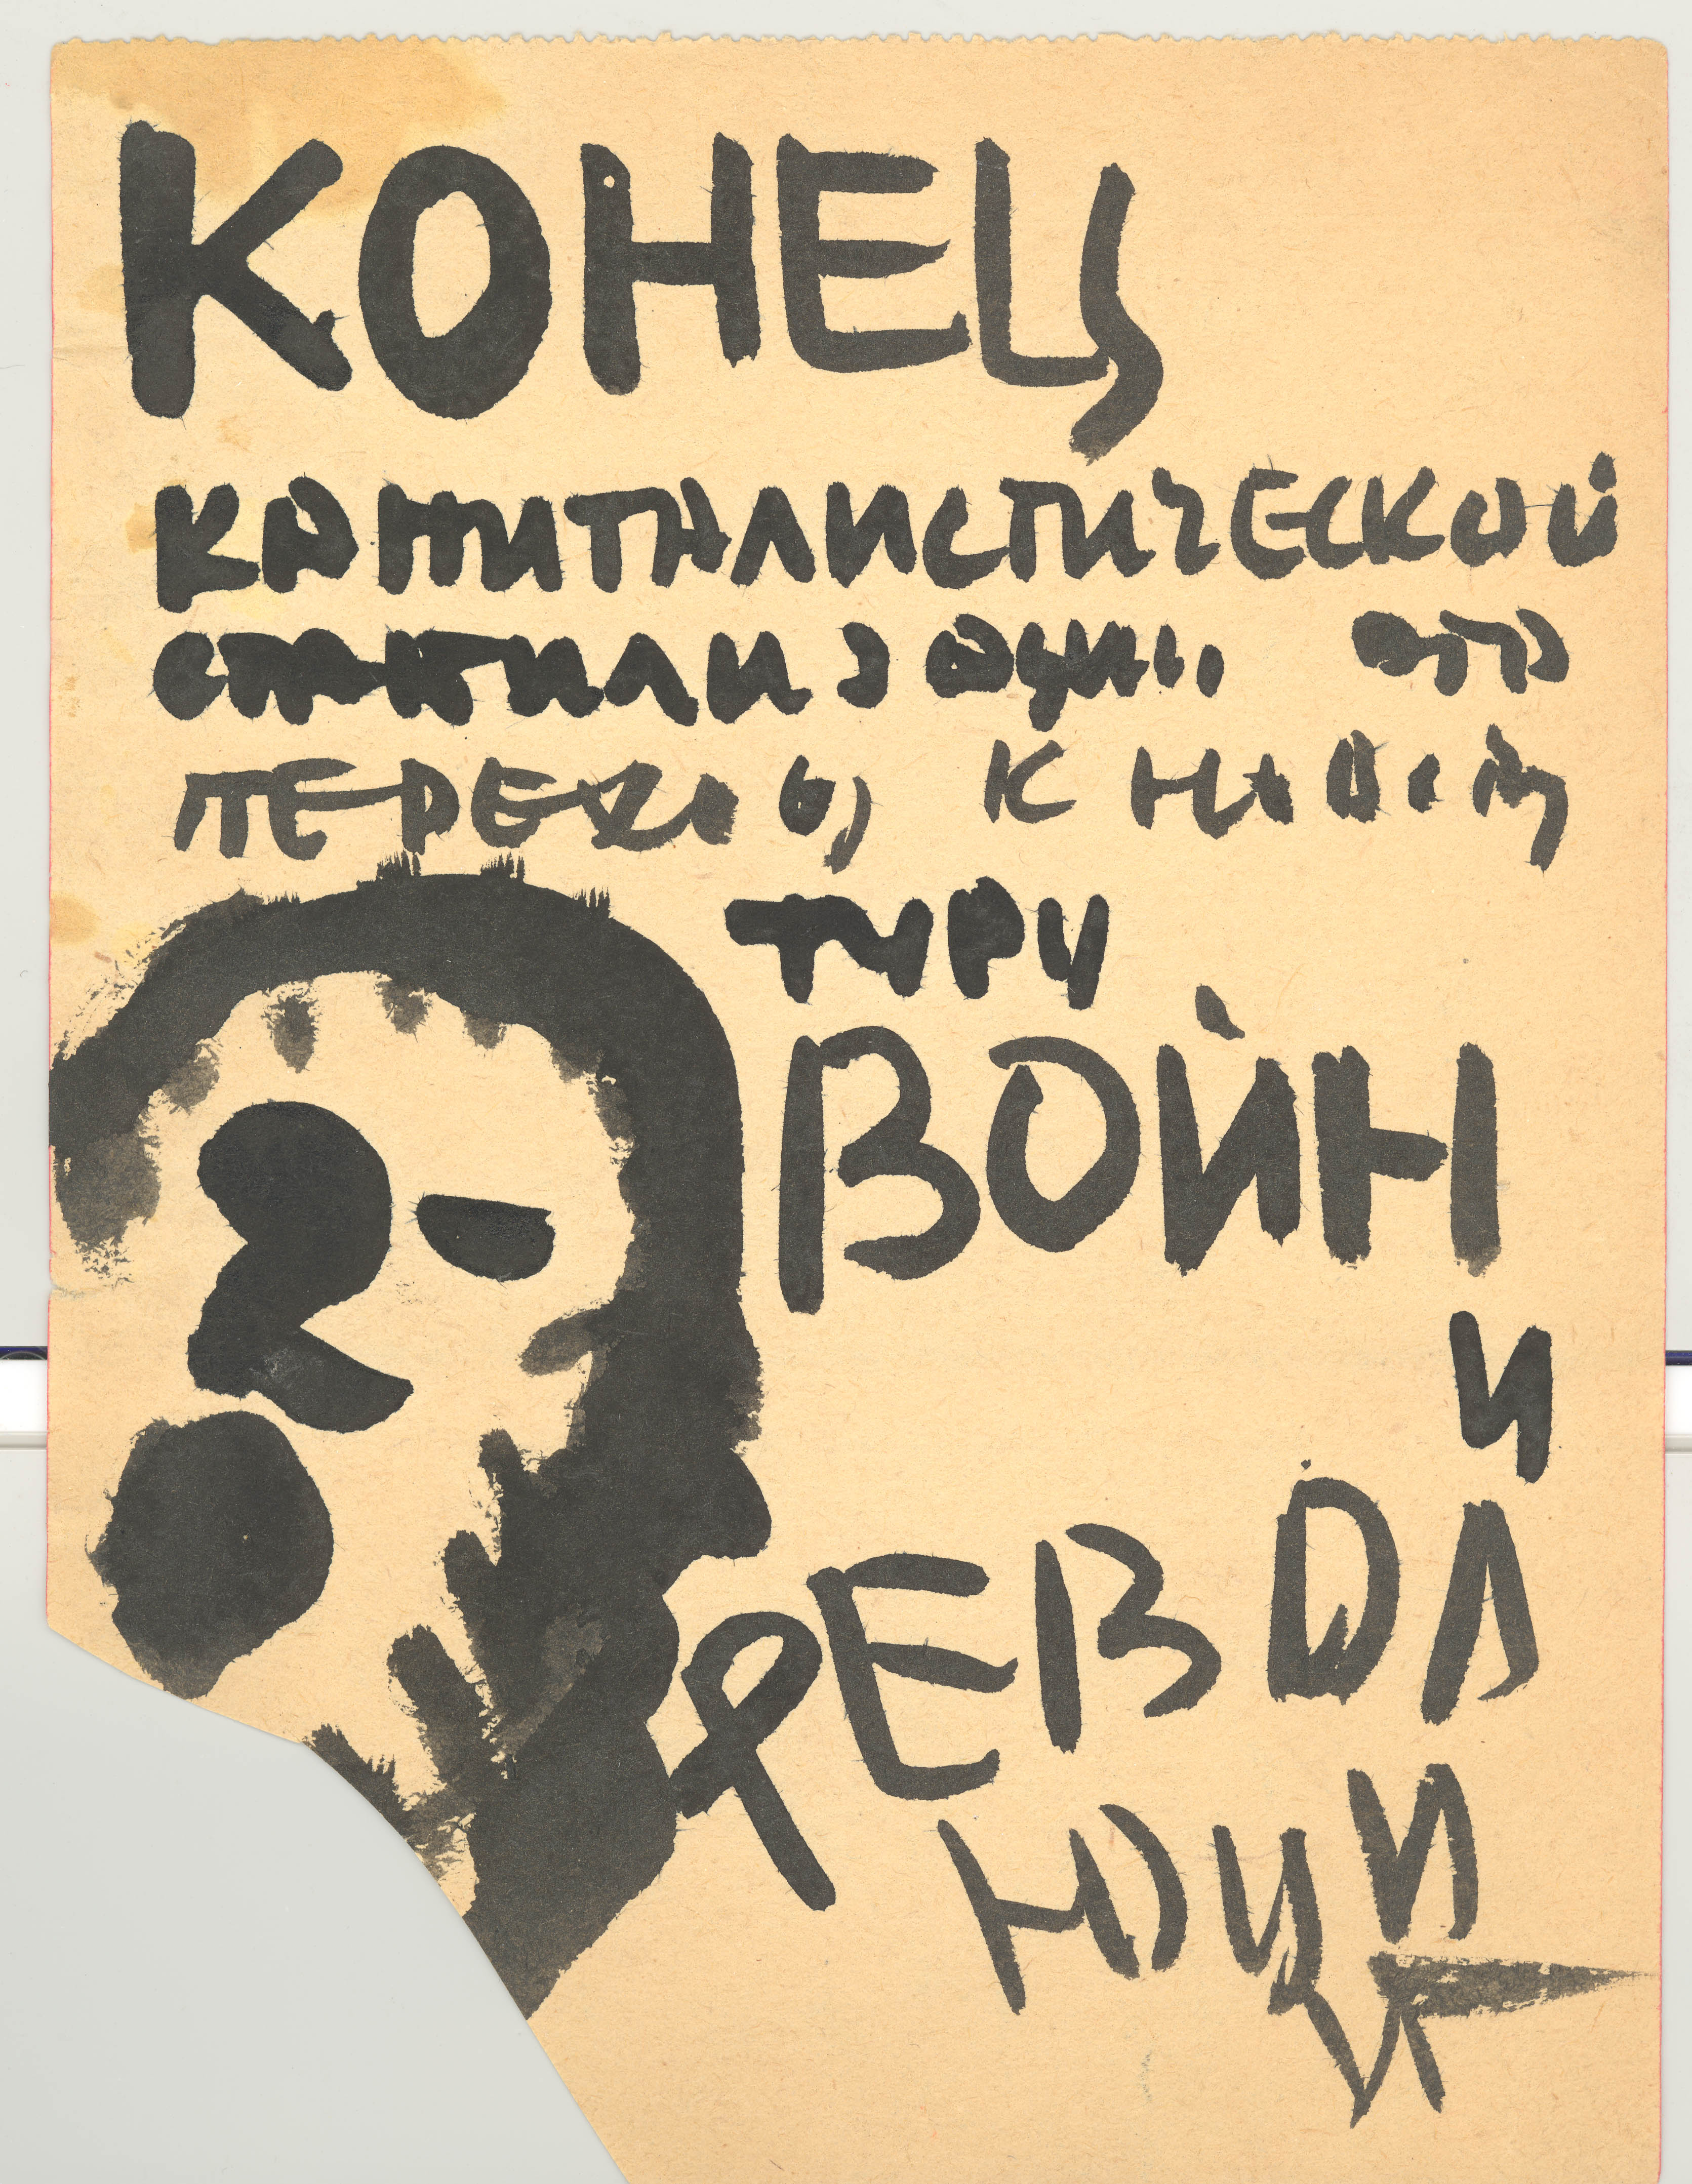 КОНЕЦ
КАПИТАЛИСТИЧЕСКОЙ
СТАБИЛИЗАЦИИ ЭТО
ПЕРЕХОД К НОВОМУ
ТУРУ
ВОЙН
И
РЕВОЛ
ЮЦИ
Й